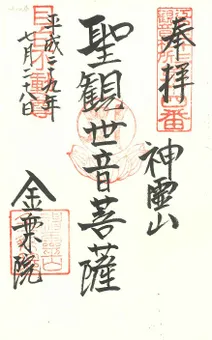 奉拝
神霊山
聖観世音菩薩
平成二十九年
七月二十八日
金乗院